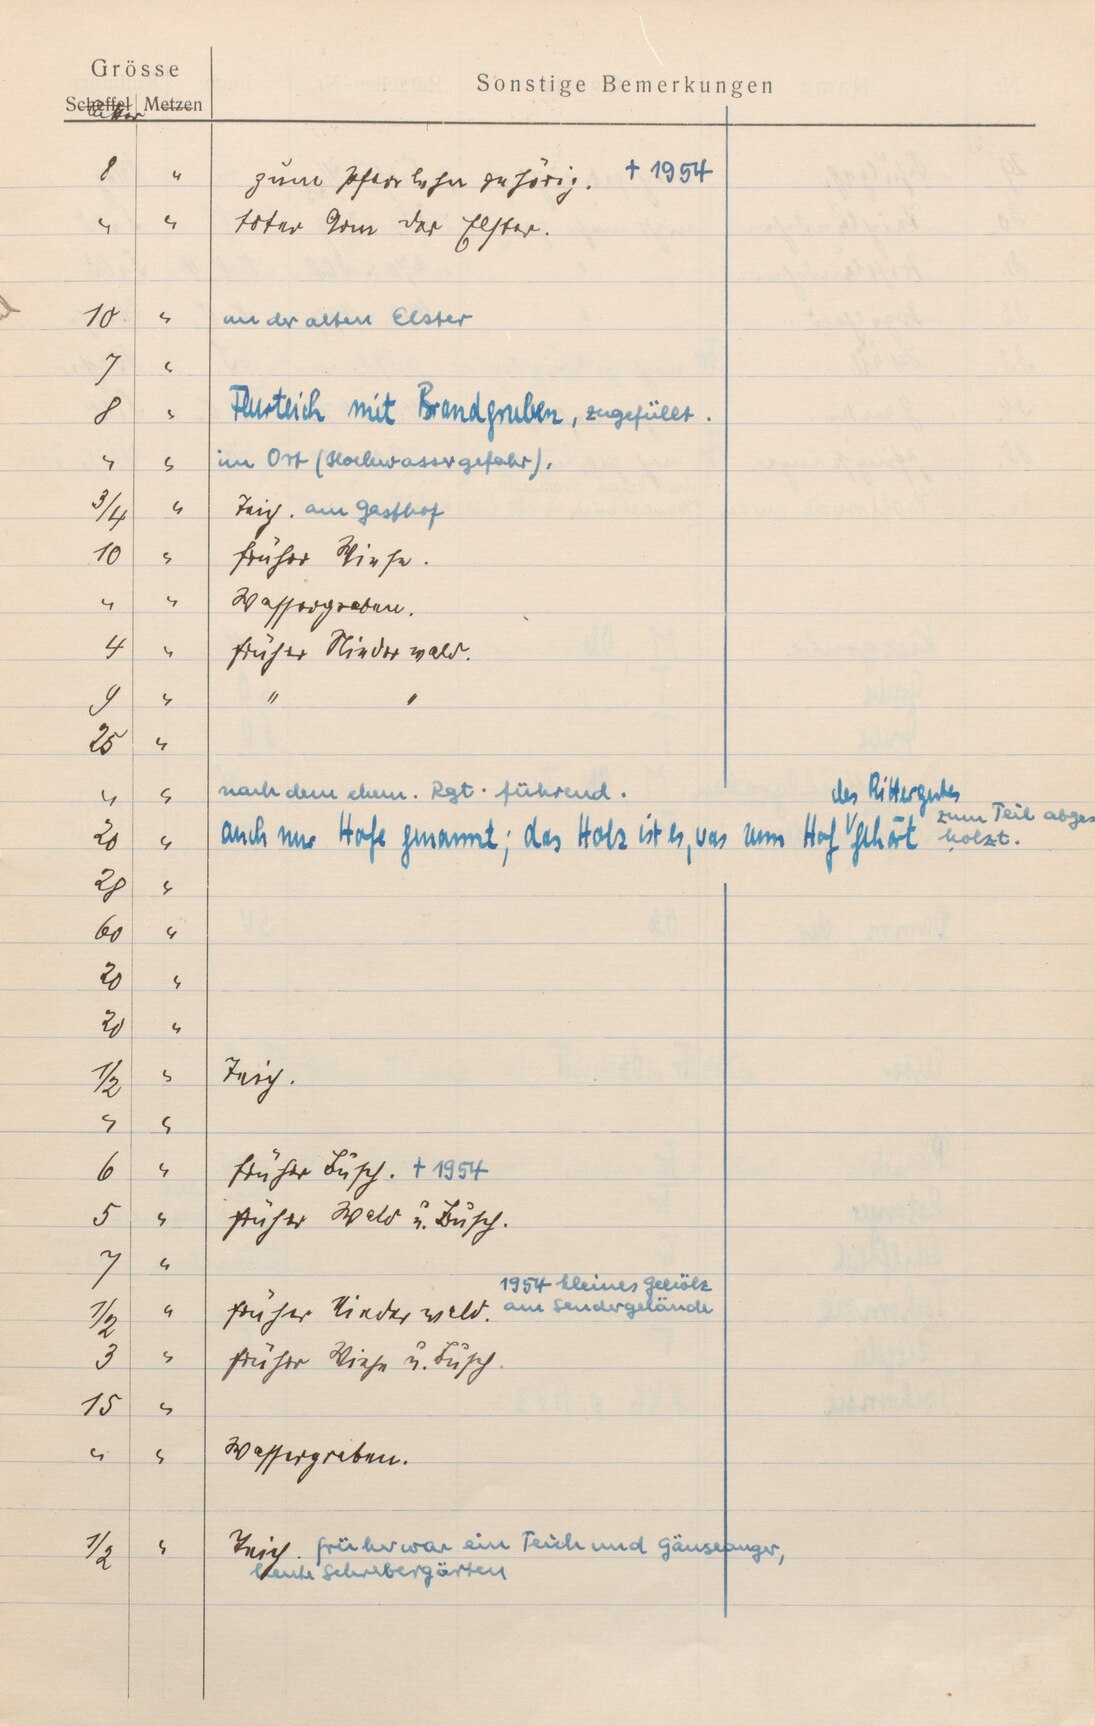 Grösse
Scheffel Metzen Sonstige Bemerkungen
Acker
8 " zum Pfarrlehn gehörig. + 1954
" " toter Arm der Elster.
10 " an der alten Elster
7 "
8 " Flurteich mit Brandgruben, zugefüllt.
" " im Ort (Hochwassergefahr).
3/4 " Teich. am Gasthof
10 " früher Wiese.
" " Wassergraben.
4 " früher Niederwald.
9 " " "
25 "
" " nach dem ehem. Rgt. führend.
des Rittergutes
20 " auch nur Hofe genannt; das Holz ist es, was zum Hof gehört zum Teil abge-
holzt.
28 "
60 "
20 "
20 "
1/2 " Teich.
" "
6 " früher Busch. + 1954
5 " früher Wald u. Busch.
7 "
1954 kleines Gehölz
1/2 " früher Niederwald. am Sendergelände
3 " früher Wiese u. Busch.
15 "
" " Wassergraben.
1/2 " Teich. früher war ein Teich und Gänseanger,
heute Schrebergärten